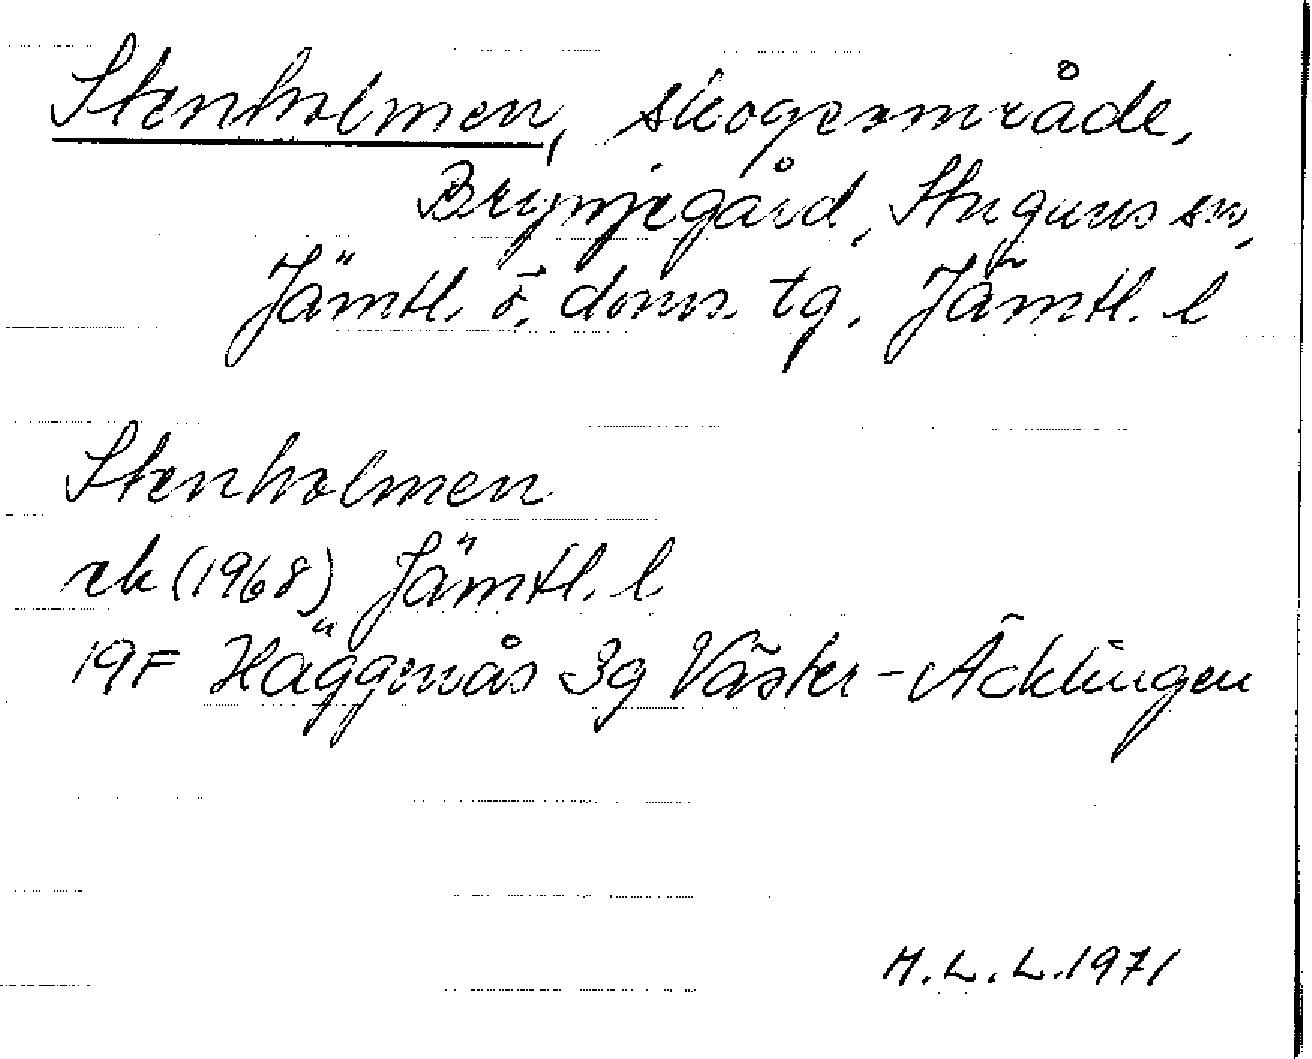 Stenholmen, skogsområde,
Brynjegård, Stuguns sn,
Jämtl. ö. doms. tg. Jämtl. l
Stenholmen
rk (1968) Jämtl. l.
19F Häggenås 3g Väster-Äcklingen
M.L.L.1971